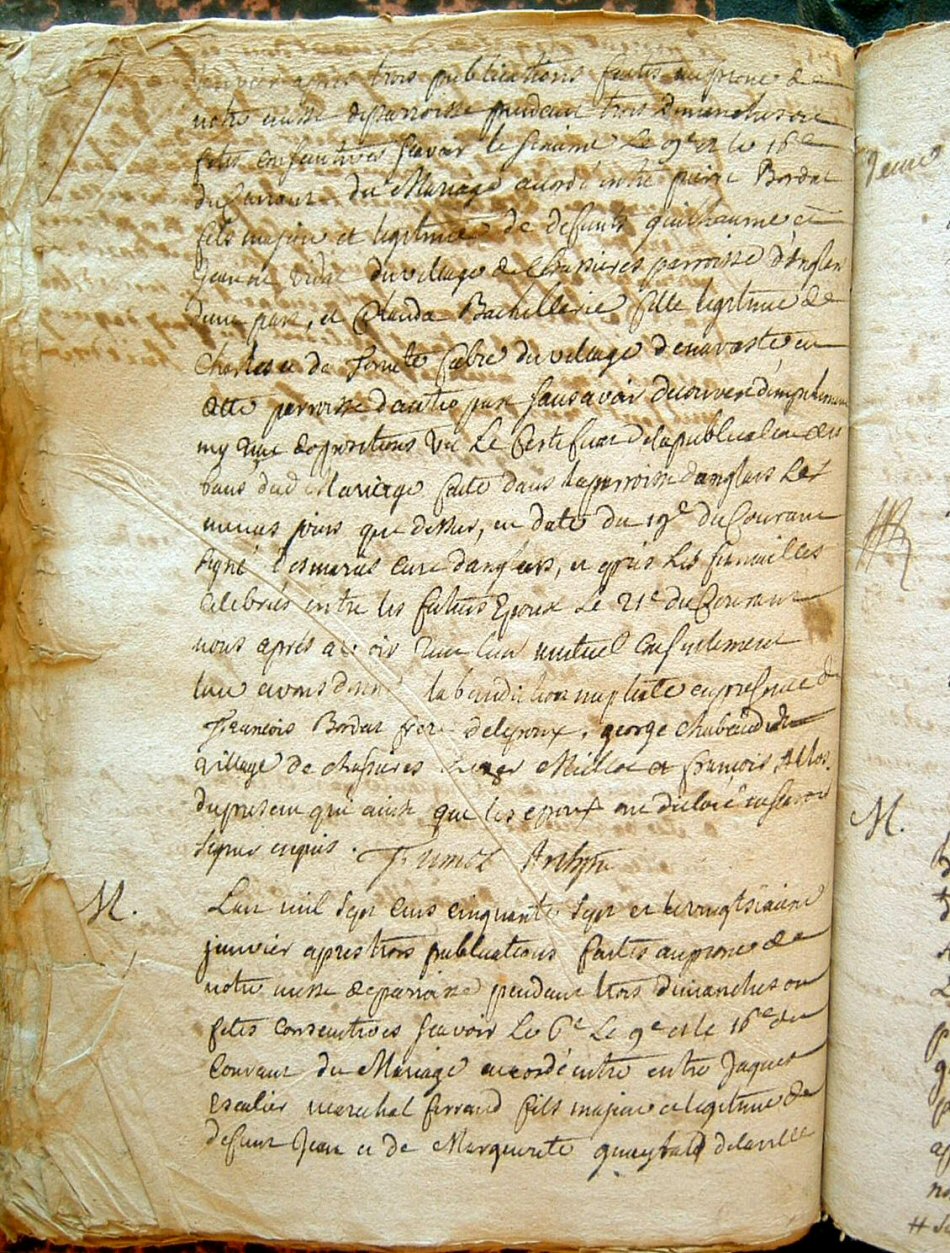 janvier apres trois publications faites au prone de
notre messe de parroisse pendant trois dimanches ou
fetes consecutives scavoir le sixieme Le 9e et le 16e
du courant du Mariage acordé entre pierre Bordat
fils majeur et legitime de defunts guilhaume et
jeanne du village de chassieres parroisse d'anglars
d'une part, et Clauda Bachellerie fille legitime de
Charles et de du village de en
cette parroisse d'autre part sans avoir decouvert d'empechement
ny reçu d'oppositions vu Le Certificat de la publication des
bans dud Mariage faite dans la parroisse d'anglars Les
memes jours que dessus, en date du 19e du Courant
signé Desmarets curé d'anglars, et apres Les fiancailles
celebrées entre les futurs Epoux Le 21e du Courant
nous après avoir reçu leur mutuel consentement
leur avons donné la benediction nuptiale en presence de
François Bordat frere de l'epoux, george Chabaud du
village de chassieres Leger Millot et françois
du present qui ainsi que les epoux ont declaré ne scavoir
signer enquis.
M. L'an mil sept cens cinquante sept et le vingt sixieme
janvier apres trois publications faites au prone de
notre messe de parroisse pendant trois dimanches ou
fetes consecutives scavoir Le 6e Le 9e et le 16e du
Courant du Mariage accordé entre entre Jaques
Escalier marechal ferrand fils majeur et legitime de
defunt Jean et de Marguerite de la ville
M.